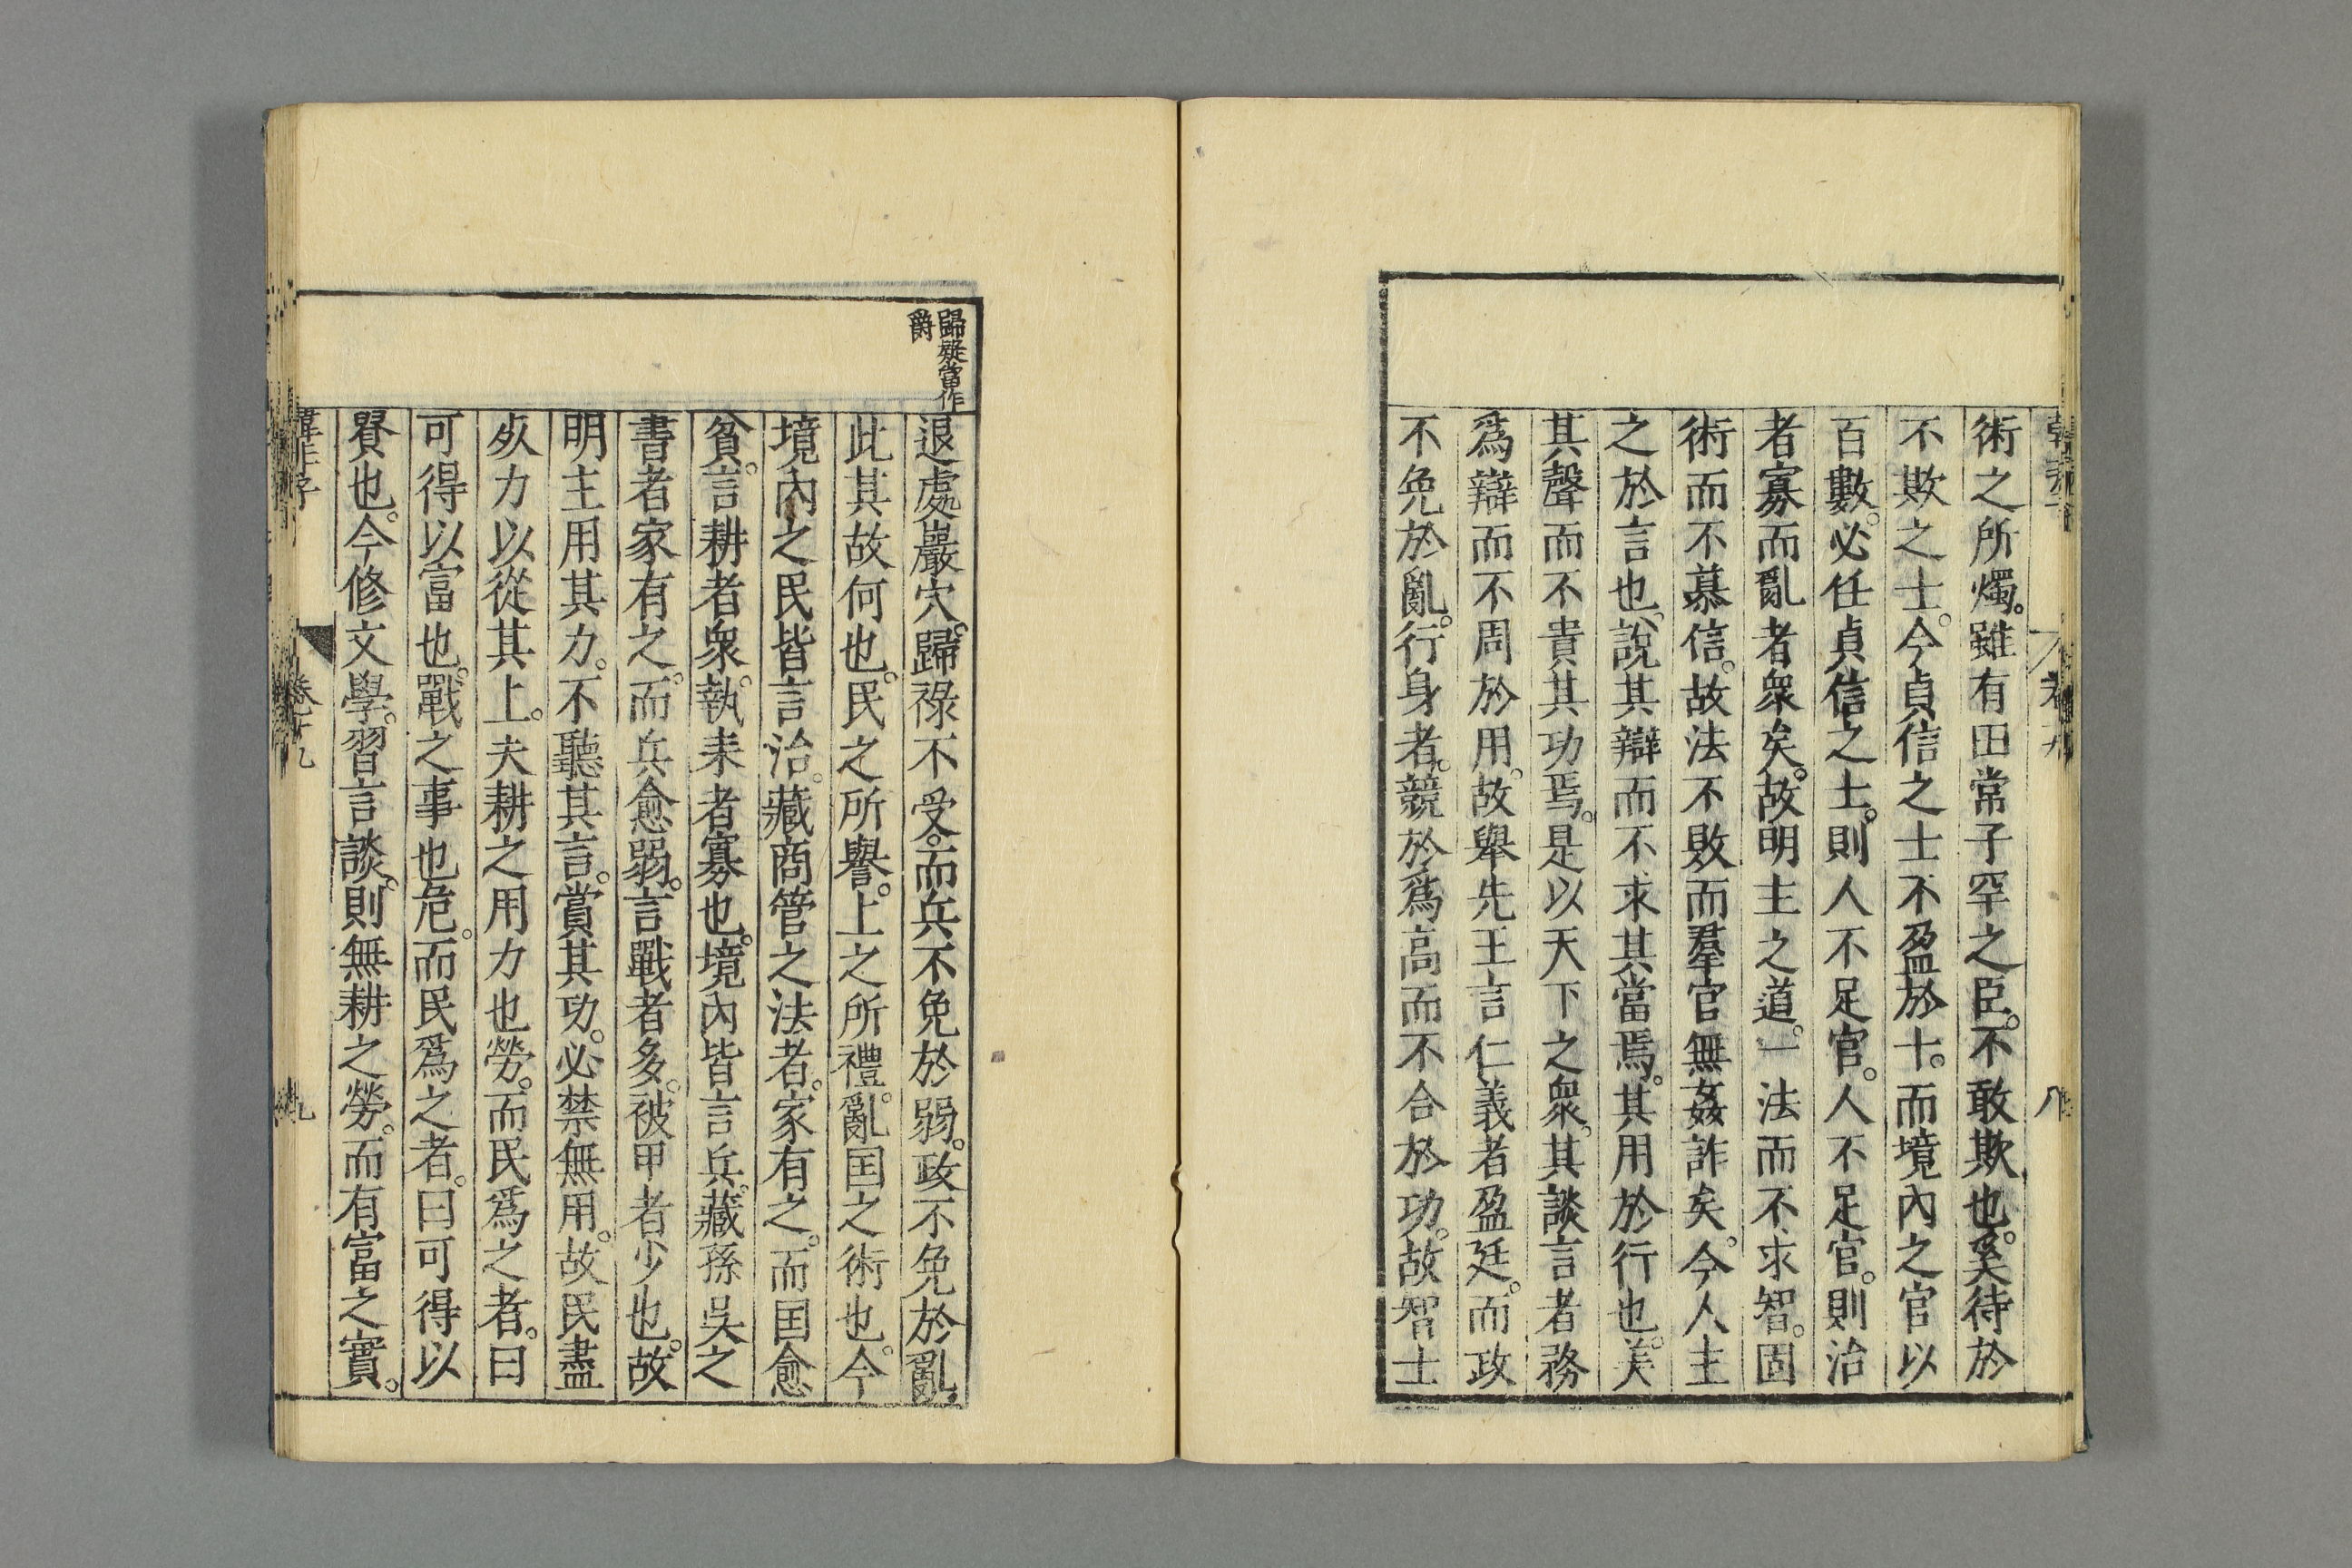 術之所燭。雖有田常子罕之臣。不敢欺也。奚待於
不欺之士。今貞信之士不盈於十。而境內之官以
百數。必任貞信之士。則人不足官。人不足官。則治
者寡而亂者衆矣。故明主之道。一法而不求智。固
術而不慕信。故法不敗而羣官無姦詐矣。今人主
之於言也。說其辯而不求其當焉。其用於行也。美
其聲而不責其功焉。是以天下之衆。其談言者務
爲辯而不周於用。故舉先王言仁義者盈廷。而政
不免於亂。行身者。競於爲高而不合於功。故智士
歸疑當作
爵
退處巖穴。歸祿不受。而兵不免於弱。政不免於亂。
此其故何也。民之所譽。上之所禮。亂国之術也。今
境內之民皆言治。藏商管之法者。家有之。而国愈
貧。言耕者衆。執耒者寡也。境內皆言兵。藏孫吳之
書者家有之。而兵愈弱。言戰者多。被甲者少也。故
明主用其力。不聽其言。賞其功。必禁無用。故民盡
死力以從其上。夫耕之用力也勞。而民爲之者。曰
可得以富也。戰之事也危。而民爲之者。曰可得以
貴也。今修文學。習言談。則無耕之勞。而有富之實。
韓非子 卷十九 九